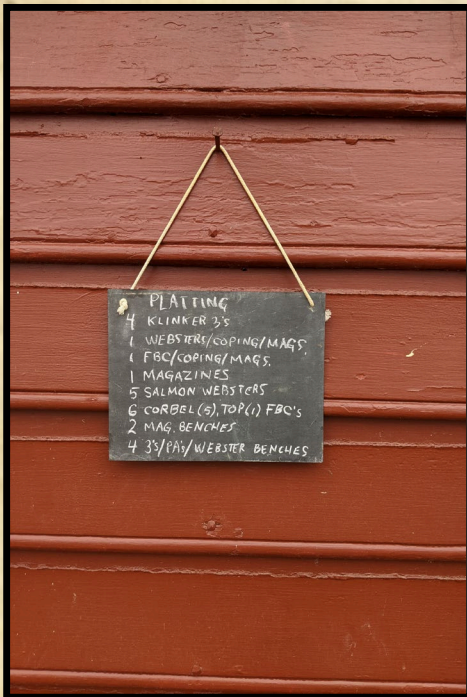 PLATTING
4 KLINKER 3's
1 WEBSTERS/COPING/MAGS.
1 FBC/COPING/MAGS.
1 MAGAZINES
5 SALMON WEBSTERS
6 CORBEL(5),TOP(1) FBC's
2 MAG. BENCHES
4 3's/PA's/WEBSTER BENCHES